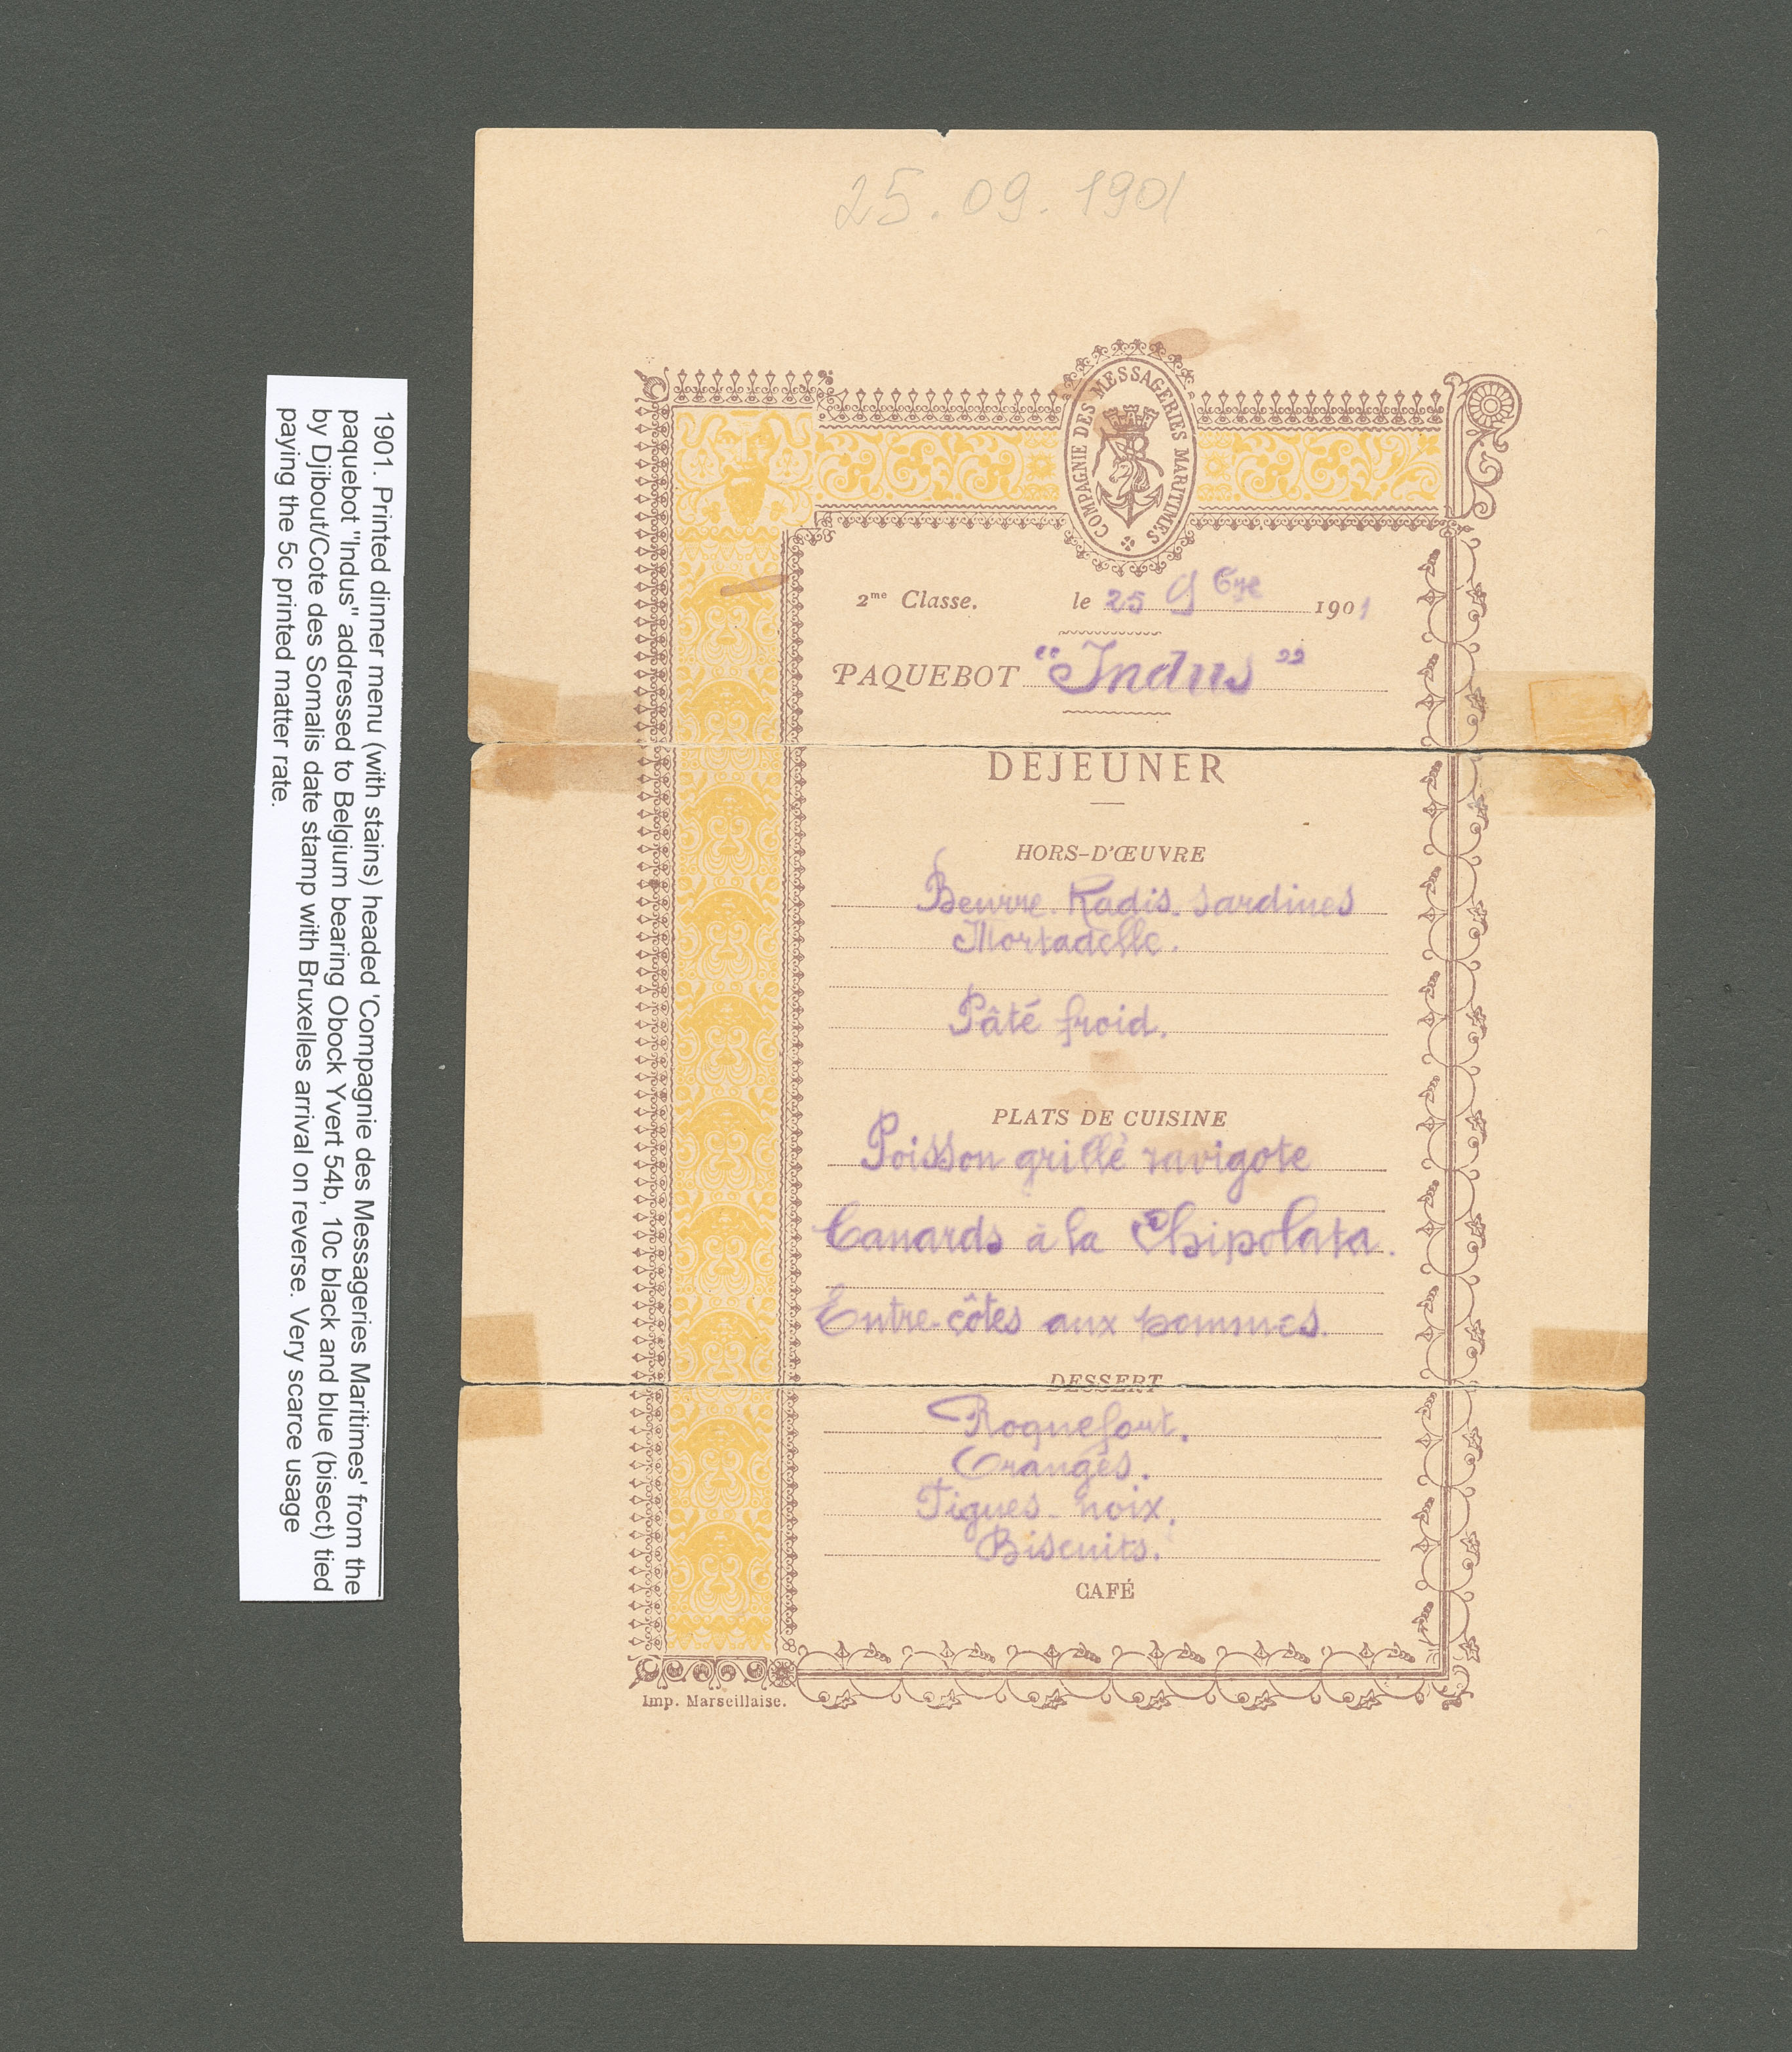 25.09.1901
COMPAGNIE DES MESSAGERIES MARITIMES
2me Classe. le 25 9bre 1901
PAQUEBOT "Indus"
DEJEUNER
HORS-D'ŒUVRE
Beurre. Radis. Sardines
Mortadelle.
Pâté froid.
PLATS DE CUISINE
Poisson grillé ravigote
Canards à la Chipolata.
Entre-côtes aux pommes.
DESSERT
Roquefort.
Oranges.
Figues - noix.
Biscuits.
CAFÉ
Imp. Marseillaise.
1901. Printed dinner menu (with stains) headed 'Compagnie des Messageries Maritimes' from the
paquebot "Indus" addressed to Belgium bearing Obock Yvert 54b, 10c black and blue (bisect) tied
by Djibout/Cote des Somalis date stamp with Bruxelles arrival on reverse. Very scarce usage
paying the 5c printed matter rate.